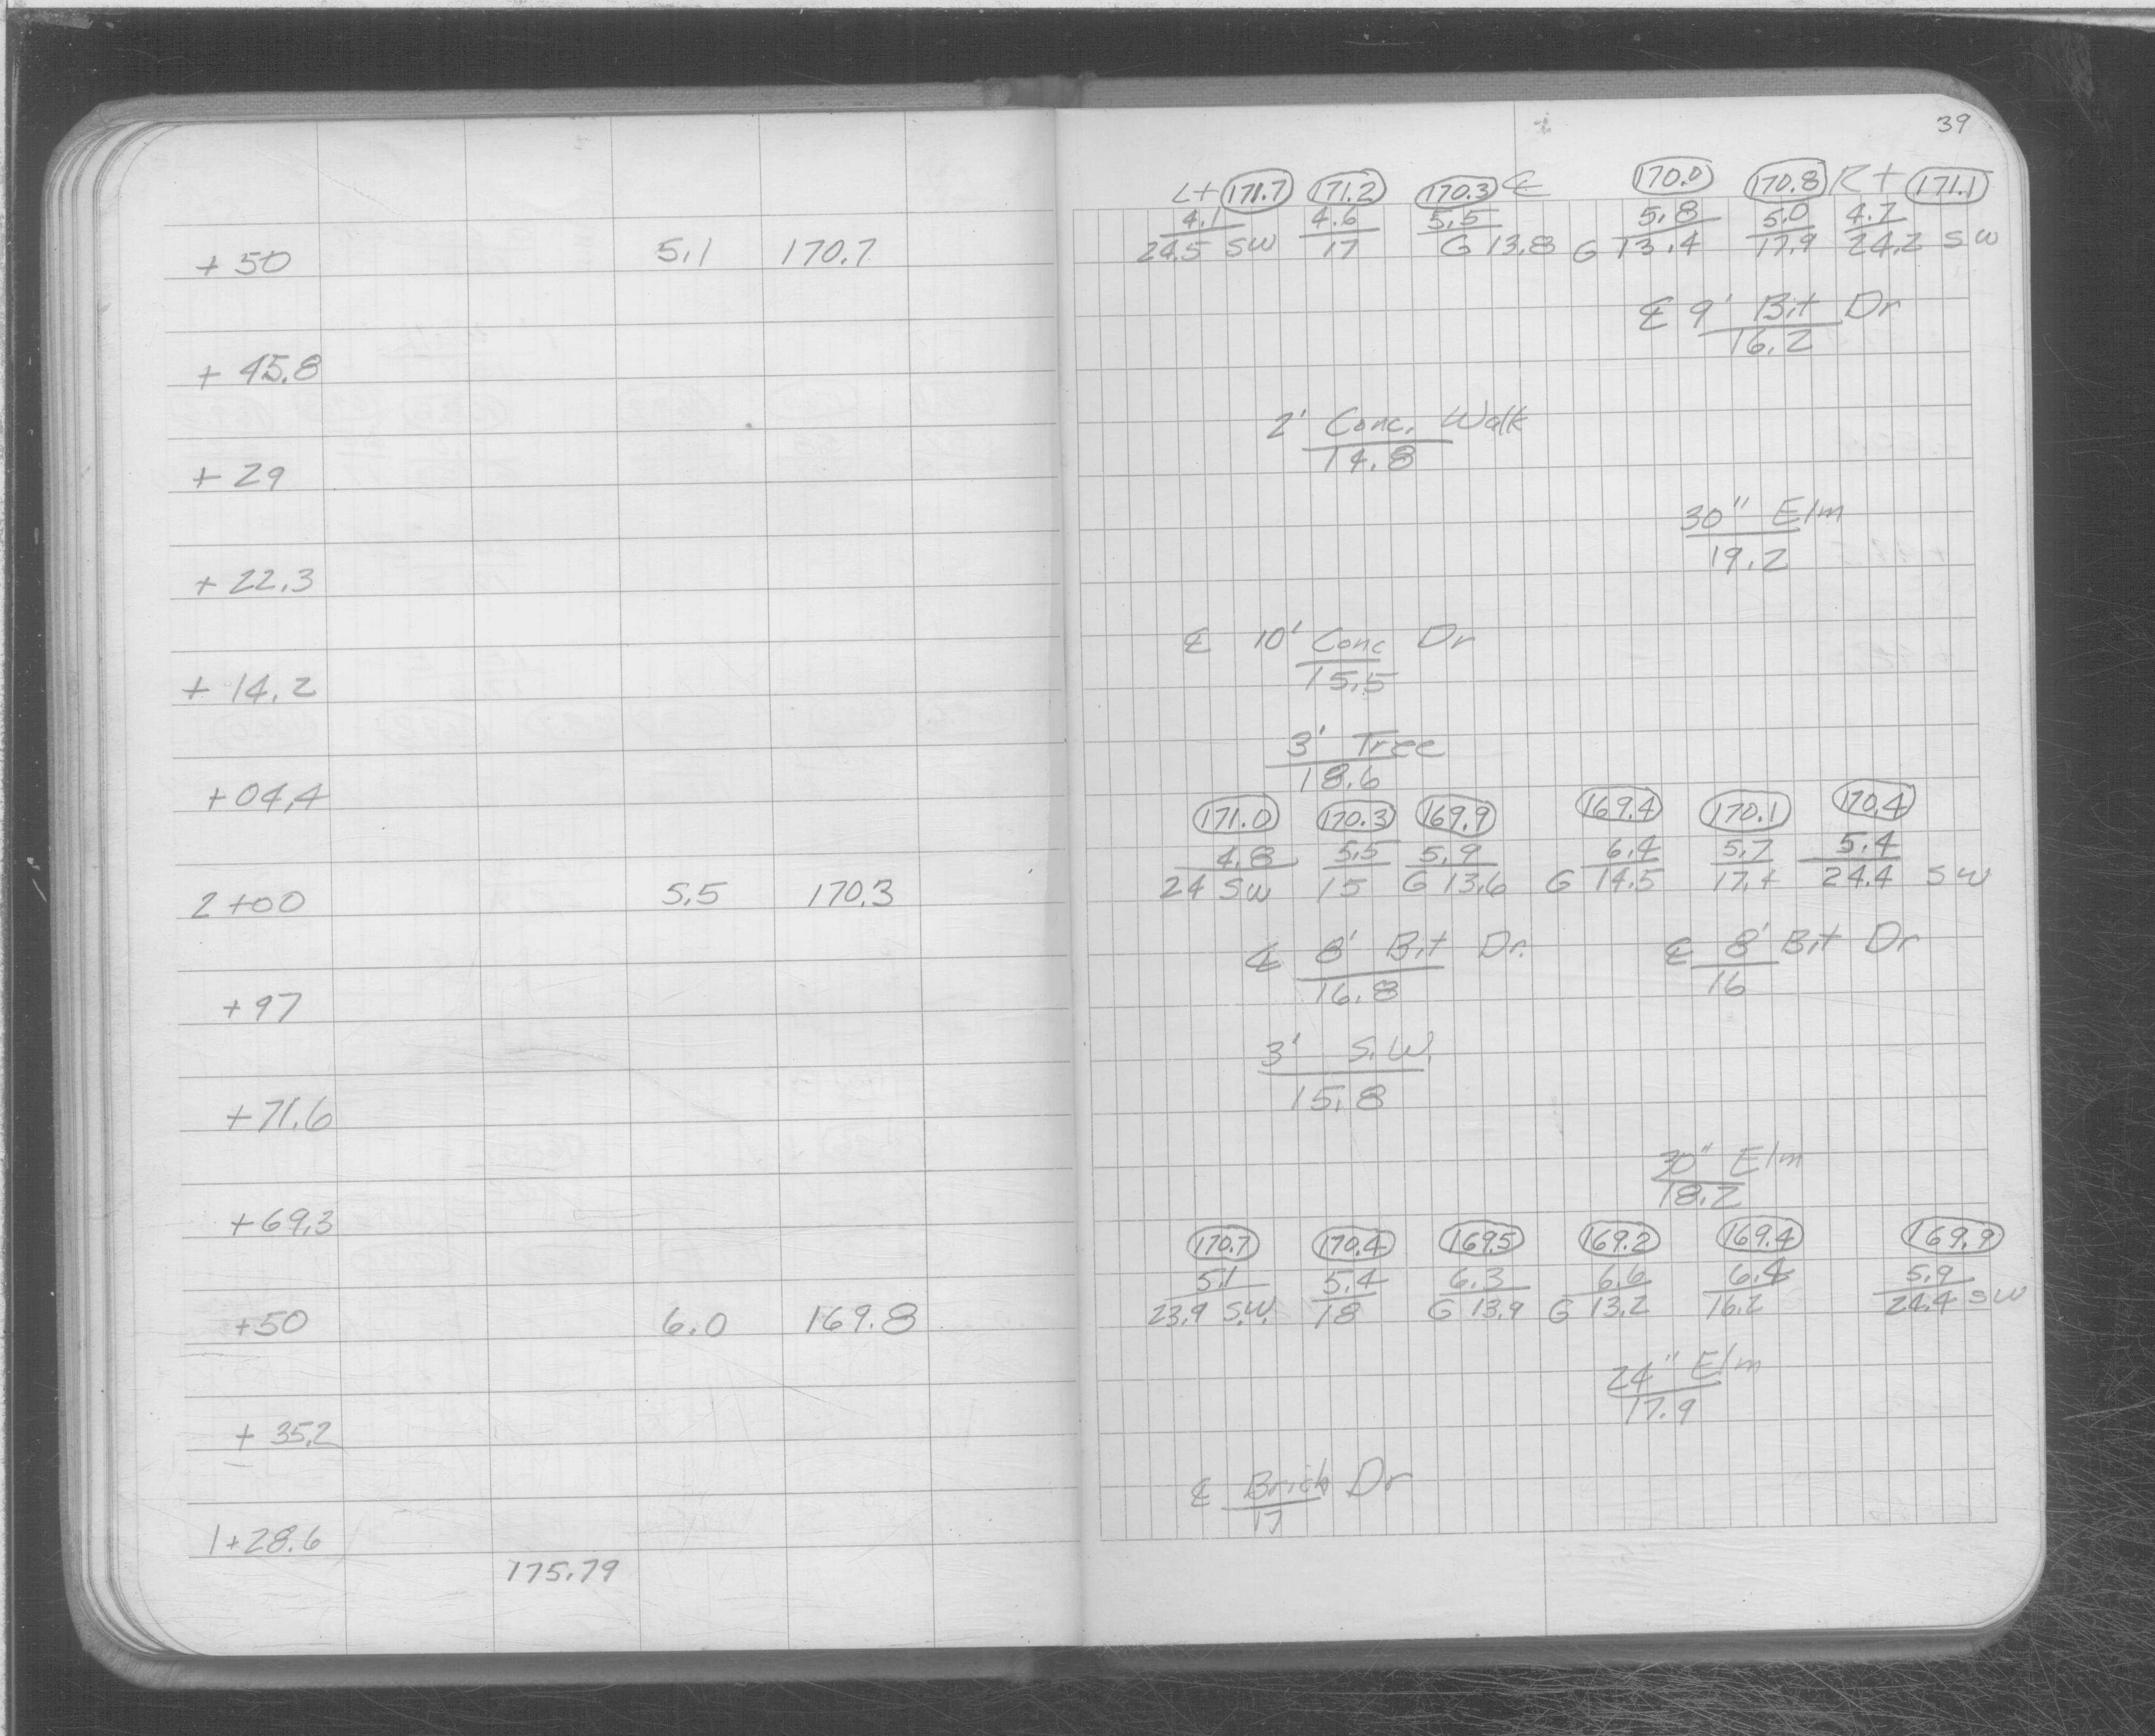 39
Lt 171.7 171.2 170.3 ℄ 170.0 170.8 Rt 171.1
4.1 4.6 5.5 5.8 5.0 4.7
+50 5.1 170.7 24.5 SW 17 G 13.8 G 13.4 17.9 24.2 SW
℄ 9' Bit Dr
16.2
+45.8
2' Conc. Walk
14.8
+29
30" Elm
19.2
+22.3
℄ 10' Conc Dr
15.5
+14.2
3' Tree
18.6
+04.4
171.0 170.3 169.9 169.4 170.1 170.4
4.8 5.5 5.9 6.4 5.7 5.4
2+00 5.5 170.3 24 SW 15 G 13.6 G 14.5 17.4 24.4 SW
℄ 8' Bit Dr. ℄ 8' Bit Dr
16.8 16
+97
3' S.W.
15.8
+71.6
30" Elm
18.2
+69.3
170.7 170.4 169.5 169.2 169.4 169.9
5.1 5.4 6.3 6.6 6.4 5.9
+50 6.0 169.8 23.9 S.W. 18 G 13.9 G 13.2 16.2 24.4 SW
24" Elm
17.9
+35.2
℄ Brick Dr
17
1+28.6
175.79